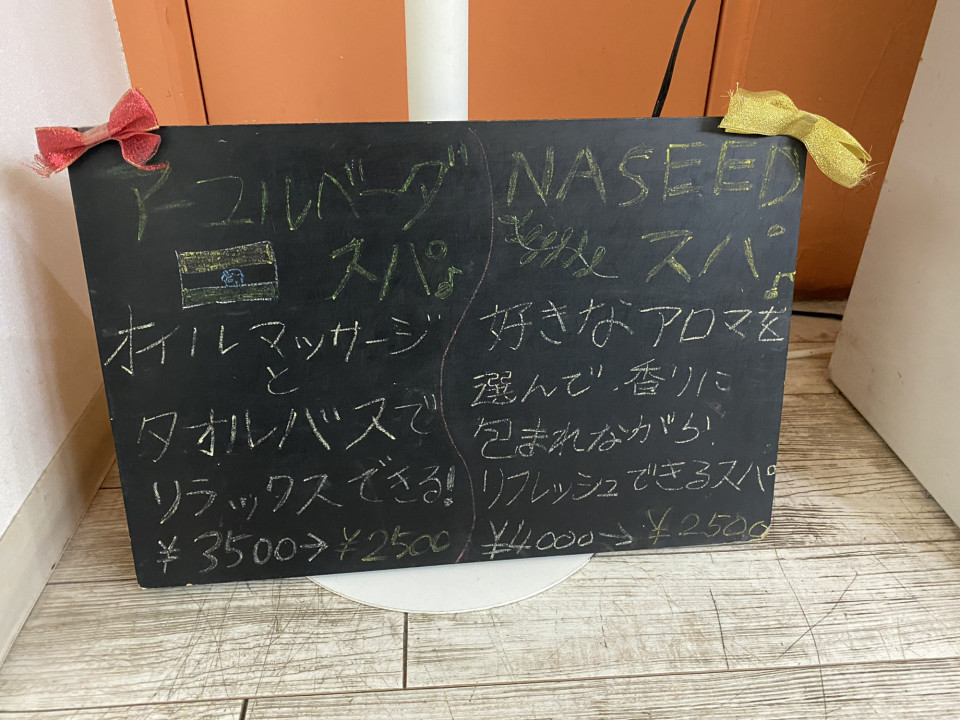 アーユルベーダ
スパ♪
オイルマッサージ
と
タオルバスで
リラックスできる!
¥3500→¥2500
NASEED
スパ♪
好きなアロマを
選んで香りに
包まれながら
リフレッシュできるスパ
¥4000→¥2500